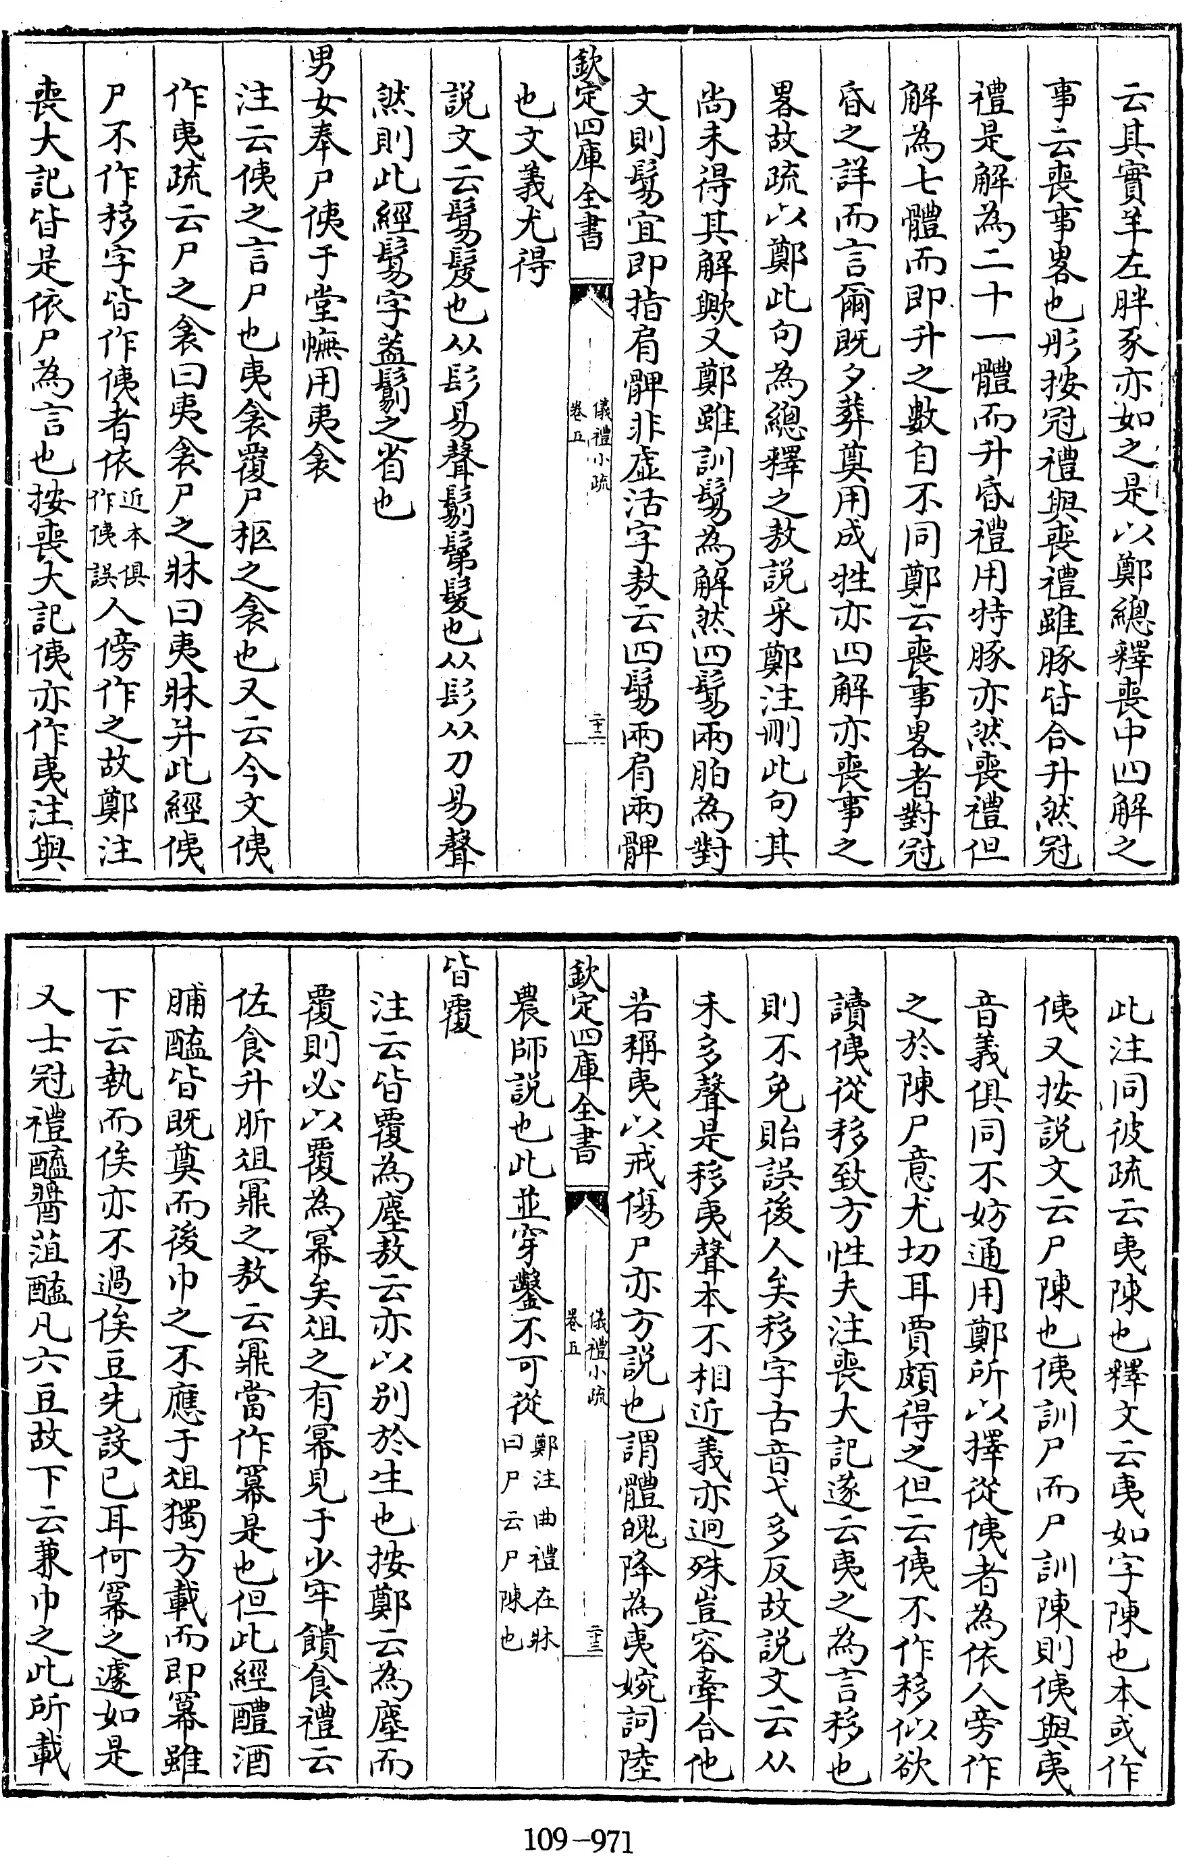 云其實羊左胖豕亦如之是以鄭總釋喪中四解之
事云喪事畧也彤按冠禮與喪禮雖豚皆合升然冠
禮是解為二十一體而升昏禮用特豚亦然喪禮但
解為七體而即升之數自不同鄭云喪事畧者對冠
昏之詳而言爾既夕葬奠用成牲亦四解亦喪事之
畧故疏以鄭此句為總釋之敖說采鄭注刪此句其
尚未得其解歟又鄭雖訓鬄為解然四鬄兩胉為對
文則鬄宜即指肩髀非虛活字敖云四鬄兩肩兩髀
欽定四庫全書
儀禮小疏
卷五
二十二
也文義尤得
說文云鬄髲也从髟易聲鬎鬀髮也从髟从刀易聲
然則此經鬄字葢鬎之省也
男女奉尸侇于堂幠用夷衾
注云侇之言尸也夷衾覆尸柩之衾也又云今文侇
作夷疏云尸之衾曰夷衾尸之牀曰夷牀并此經侇
尸不作移字皆作侇者依近本俱作侇誤人傍作之故鄭注
喪大記皆是依尸為言也按喪大記侇亦作夷注與
此注同彼疏云夷陳也釋文云夷如字陳也本或作
侇又按說文云尸陳也侇訓尸而尸訓陳則侇與夷
音義俱同不妨通用鄭所以擇從侇者為依人旁作
之於陳尸意尤切耳賈頗得之但云侇不作移似欲
讀侇從移致方性夫注喪大記遂云夷之為言移也
則不免貽誤後人矣移字古音弋多反故說文云从
禾多聲是移夷聲本不相近義亦迥殊豈容牽合他
若稱夷以戒傷尸亦方說也謂體魄降為夷婉詞陸
欽定四庫全書
儀禮小疏
卷五
二十三
農師說也此並穿鑿不可從鄭注曲禮在牀曰尸云尸陳也
皆覆
注云皆覆為塵敖云亦以別於生也按鄭云為塵而
覆則必以覆為冪矣俎之有冪見于少牢饋食禮云
佐食升肵俎鼏之敖云鼏當作冪是也但此經醴酒
脯醢皆既奠而後巾之不應于俎獨方載而即冪雖
下云執而俟亦不過俟豆先設已耳何冪之遽如是
又士冠禮醯醬菹醢凡六豆故下云兼巾之此所載
109-971